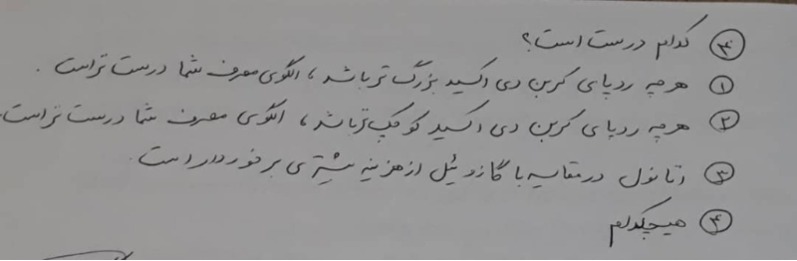 ③ کدام درست است؟
① هرچه ردپای کربن دی اکسید بزرگ تر باشد، الگوی مصرف شما درست تر است.
② هرچه ردپای کربن دی اکسید کوچک تر باشد، الگوی مصرف شما درست تر است.
③ اتانول در مقایسه با گازوئیل از هزینه بیشتری برخوردار است.
④ هیچکدام